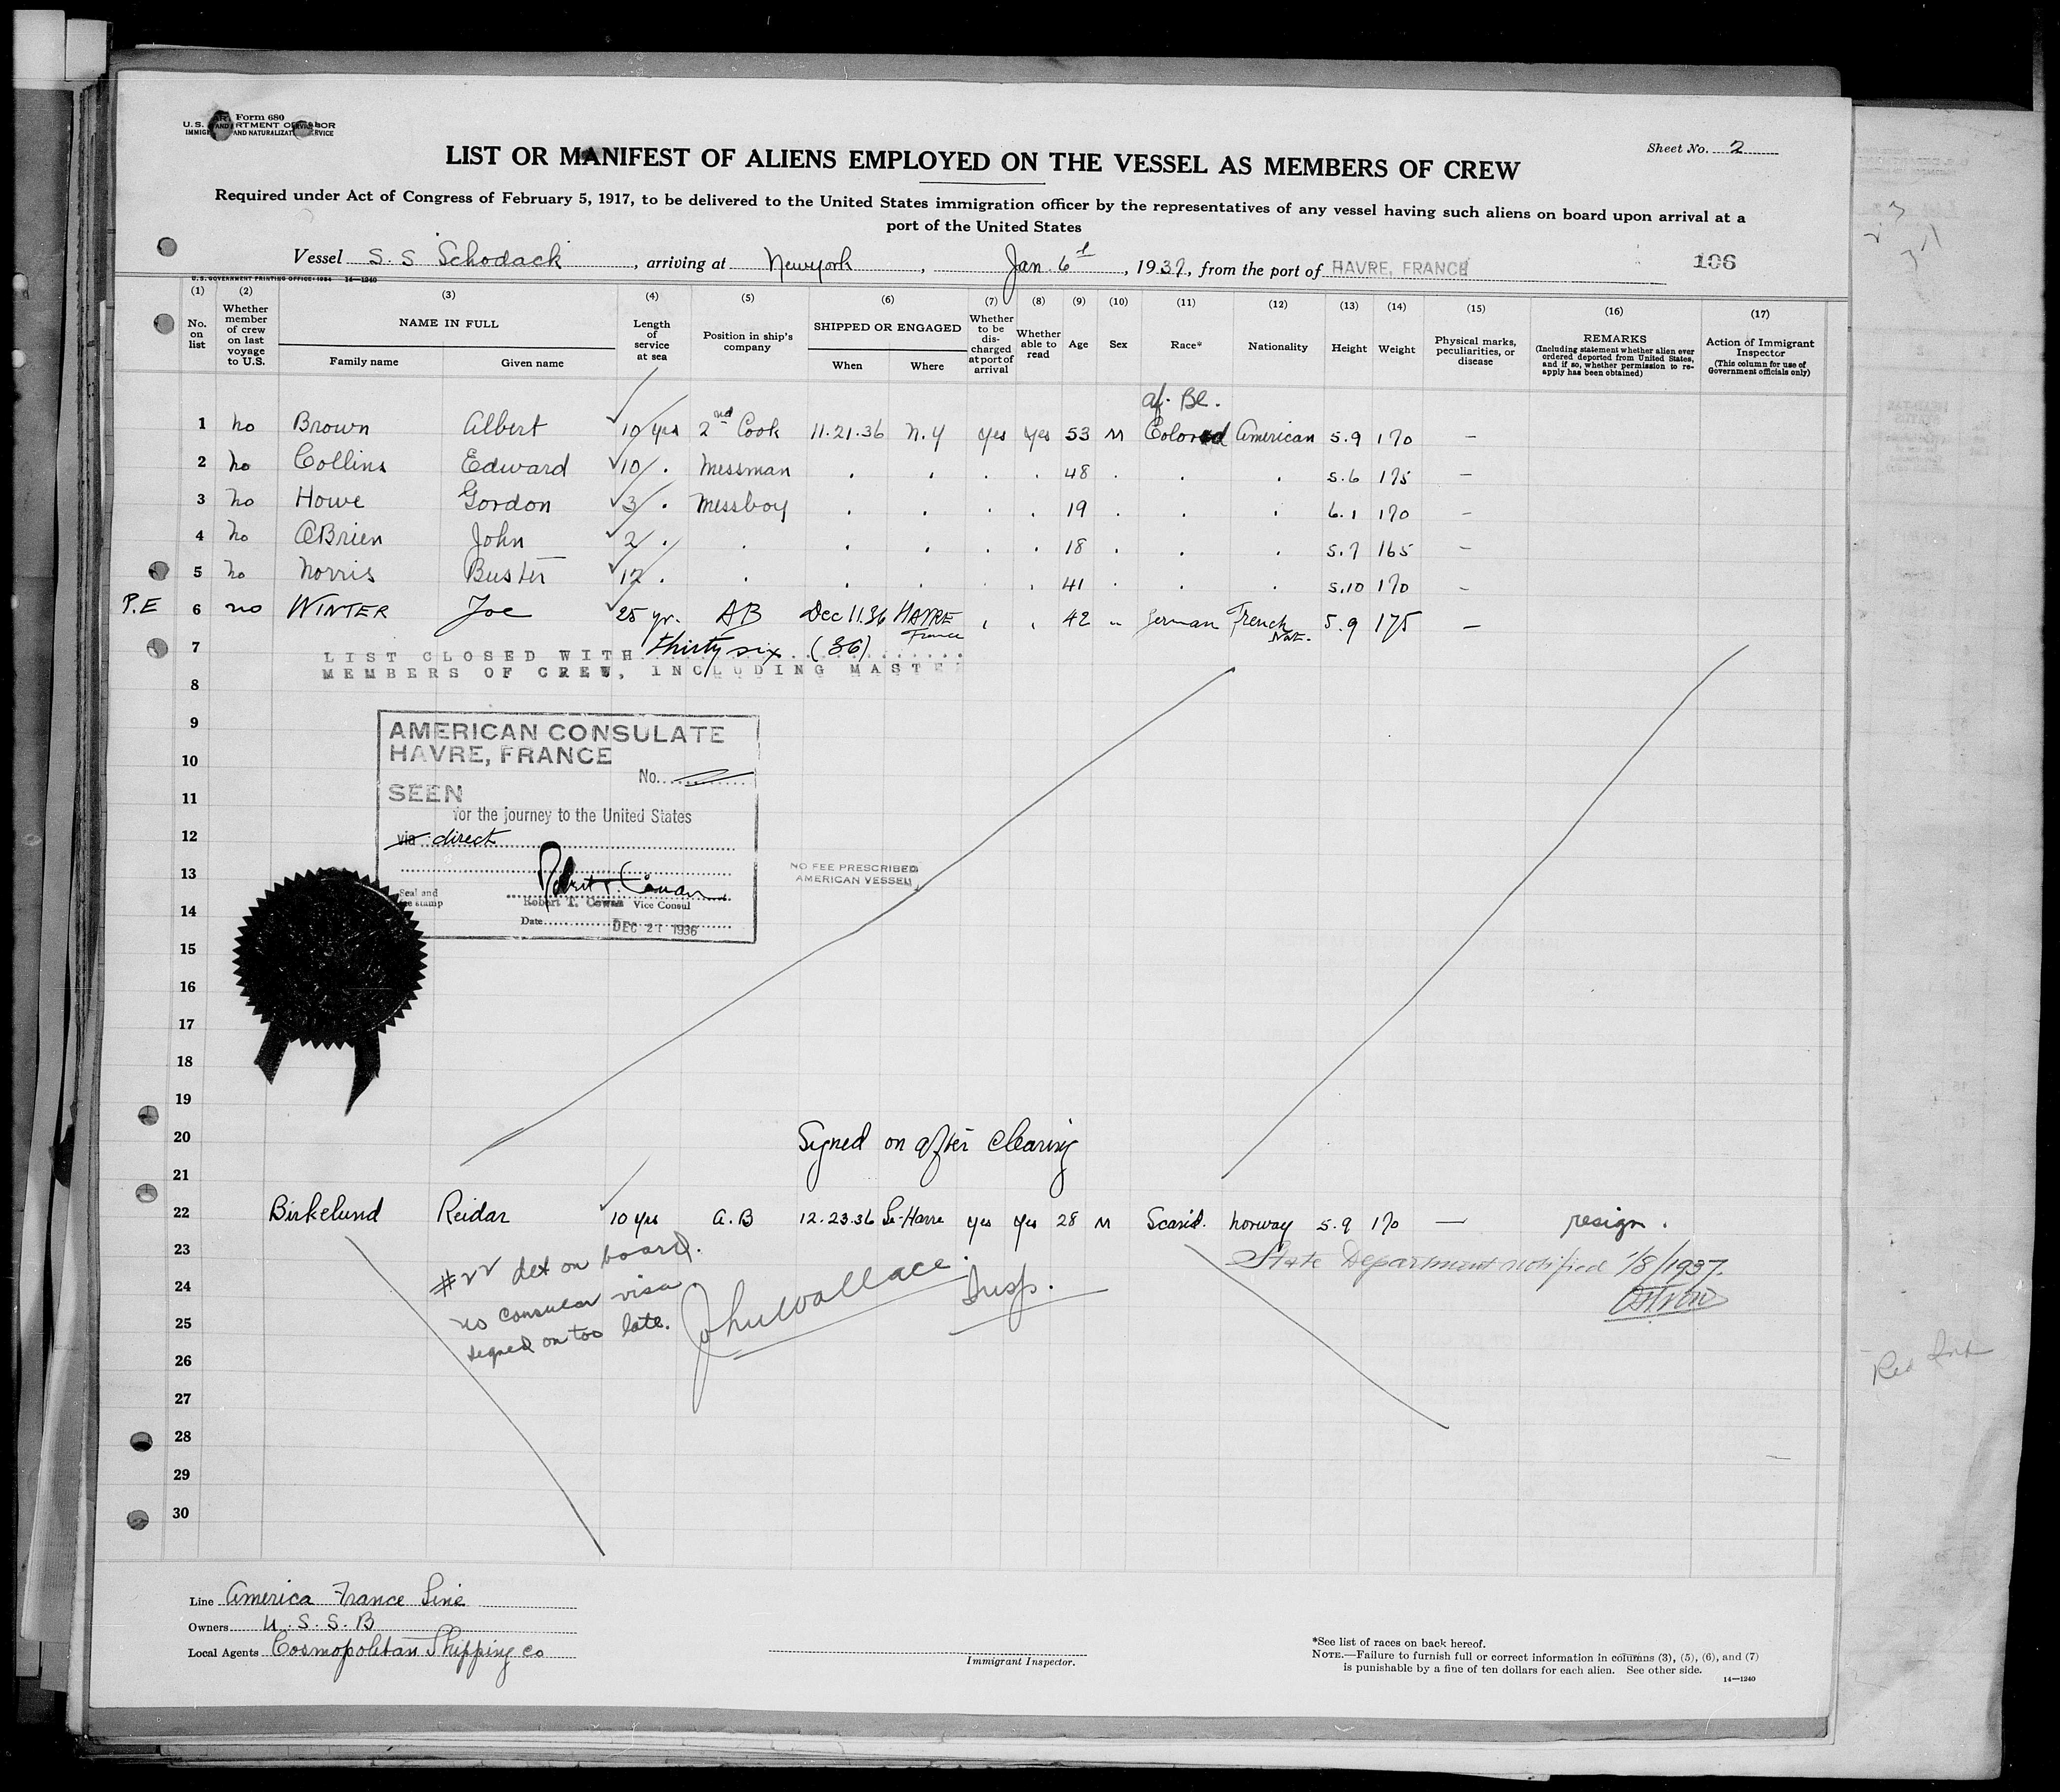 Form 680
U. S. DEPARTMENT OF LABOR
IMMIGRATION AND NATURALIZATION SERVICE
Sheet No. 2
LIST OR MANIFEST OF ALIENS EMPLOYED ON THE VESSEL AS MEMBERS OF CREW
Required under Act of Congress of February 5, 1917, to be delivered to the United States immigration officer by the representatives of any vessel having such aliens on board upon arrival at a
port of the United States
Vessel S.S Schodack, arriving at New York, Jan. 6, 1937, from the port of HAVRE, FRANCE
106
U. S. GOVERNMENT PRINTING OFFICE: 1934 14—1240
(1) No. on list
(2) Whether member of crew on last voyage to U.S.
(3) NAME IN FULL Family name Given name
(4) Length of service at sea
(5) Position in ship's company
(6) SHIPPED OR ENGAGED When Where
(7) Whether to be discharged at port of arrival
(8) Whether able to read
(9) Age
(10) Sex
(11) Race*
(12) Nationality
(13) Height
(14) Weight
(15) Physical marks, peculiarities, or disease
(16) REMARKS (Including statement whether alien ever ordered deported from United States, and if so, whether permission to re-apply has been obtained)
(17) Action of Immigrant Inspector (This column for use of Government officials only)
af. Bl.
1 no Brown Albert 10 yrs 2nd Cook 11.21.36 N.Y yes yes 53 M Colored American 5.9 170 –
2 no Collins Edward 10 . Messman . . . . 48 . . . 5.6 175 –
3 no Howe Gordon 3 . Messboy . . . . 19 . . . 6.1 170 –
4 no OBrien John 2 . . . . . . 18 . . . 5.7 165 –
5 no Norris Buster 17 . . . . . . 41 . . . 5.10 170 –
P.E 6 no WINTER Joe 25 yr. AB Dec 11.36 HAVRE France 42 German French 5.9 175 –
7 LIST CLOSED WITH thirty six (36)
MEMBERS OF CREW, INCLUDING MASTER
8
9
AMERICAN CONSULATE
HAVRE, FRANCE
10
No.
11
SEEN
for the journey to the United States
12
via direct
13
NO FEE PRESCRIBED
AMERICAN VESSEL
Seal and
fee stamp
Robert T. Cowan Vice Consul
14
Date DEC 21 1936
15
16
17
18
19
20
Signed on after clearing
21
22 Birkelund Reidar 10 yrs A.B 12.23.36 Le-Havre yes yes 28 M Scand. Norway 5.9 170 — resign.
23
#22 det on board.
State Department notified 1/8/1937.
24
no consular visa
John Wallace Insp.
25
signed on too late.
26
27
28
29
30
Line America France Line
Owners U.S.S.B
Local Agents Cosmopolitan Shipping Co
Immigrant Inspector.
*See list of races on back hereof.
NOTE.—Failure to furnish full or correct information in columns (3), (5), (6), and (7)
is punishable by a fine of ten dollars for each alien. See other side.
14—1240
Red Ink